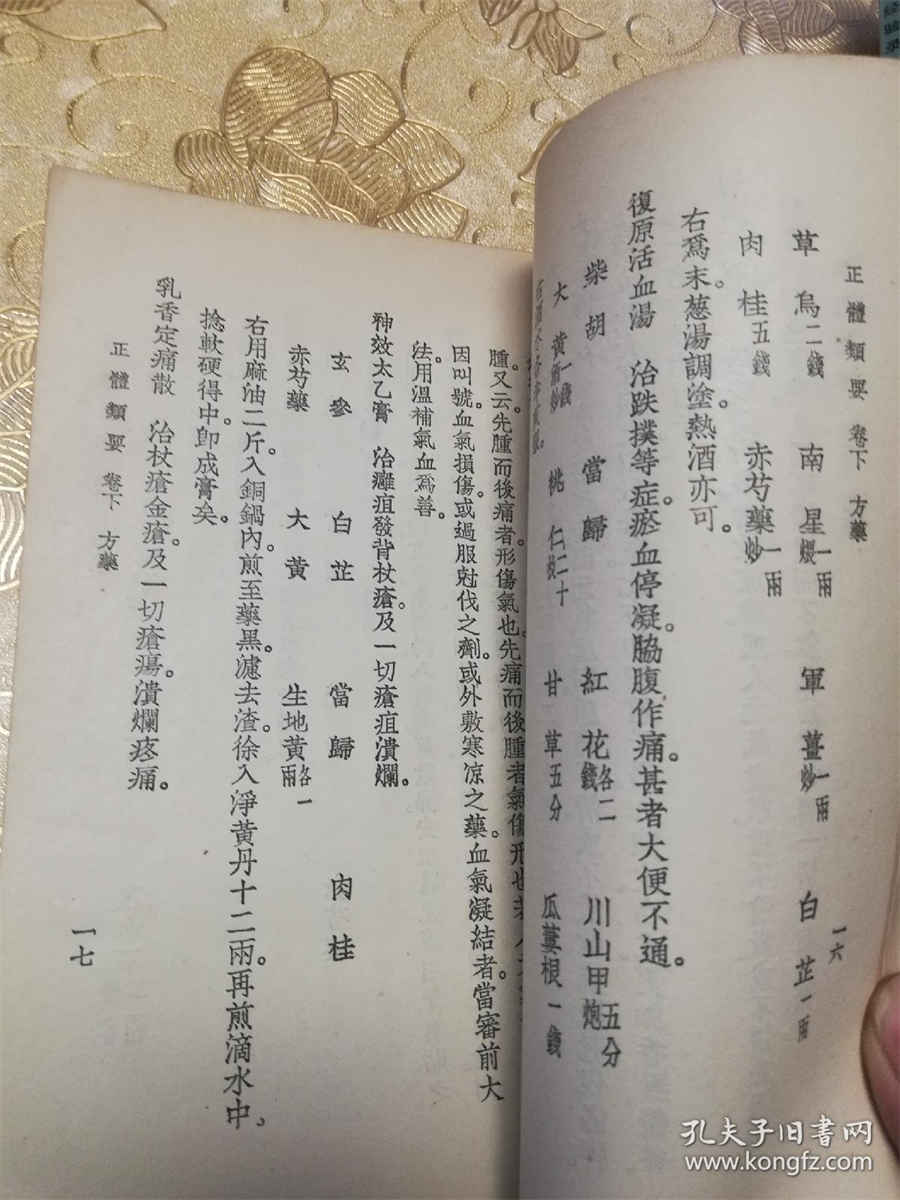 正體類要 卷下 方藥 一六
草烏二錢 南星一兩煨 軍薑一兩炒 白芷一兩
肉桂五錢 赤芍藥一兩炒
右爲末。葱湯調塗。熱酒亦可。
復原活血湯 治跌撲等症。瘀血停凝。脇腹作痛。甚者大便不通。
柴胡 當歸 紅花各二錢 川山甲五分炮
大黃一錢酒炒 桃仁二十枚 甘草五分 瓜蔞根一錢
腫又云先腫而後痛者形傷氣也先痛而後腫者氣傷形也
因叫號。血氣損傷。或過服尅伐之劑。或外敷寒凉之藥。血氣凝結者。當審前大
法。用溫補氣血爲善。
神效太乙膏 治癰疽發背杖瘡。及一切瘡疽潰爛。
玄參 白芷 當歸 肉桂
赤芍藥 大黃 生地黃各一兩
右用麻油二斤。入銅鍋內。煎至藥黑。濾去渣。徐入淨黃丹十二兩。再煎滴水中。
捻軟硬得中。卽成膏矣。
乳香定痛散 治杖瘡金瘡。及一切瘡瘍。潰爛疼痛。
正體類要 卷下 方藥 一七
孔夫子旧书网
www.kongfz.com